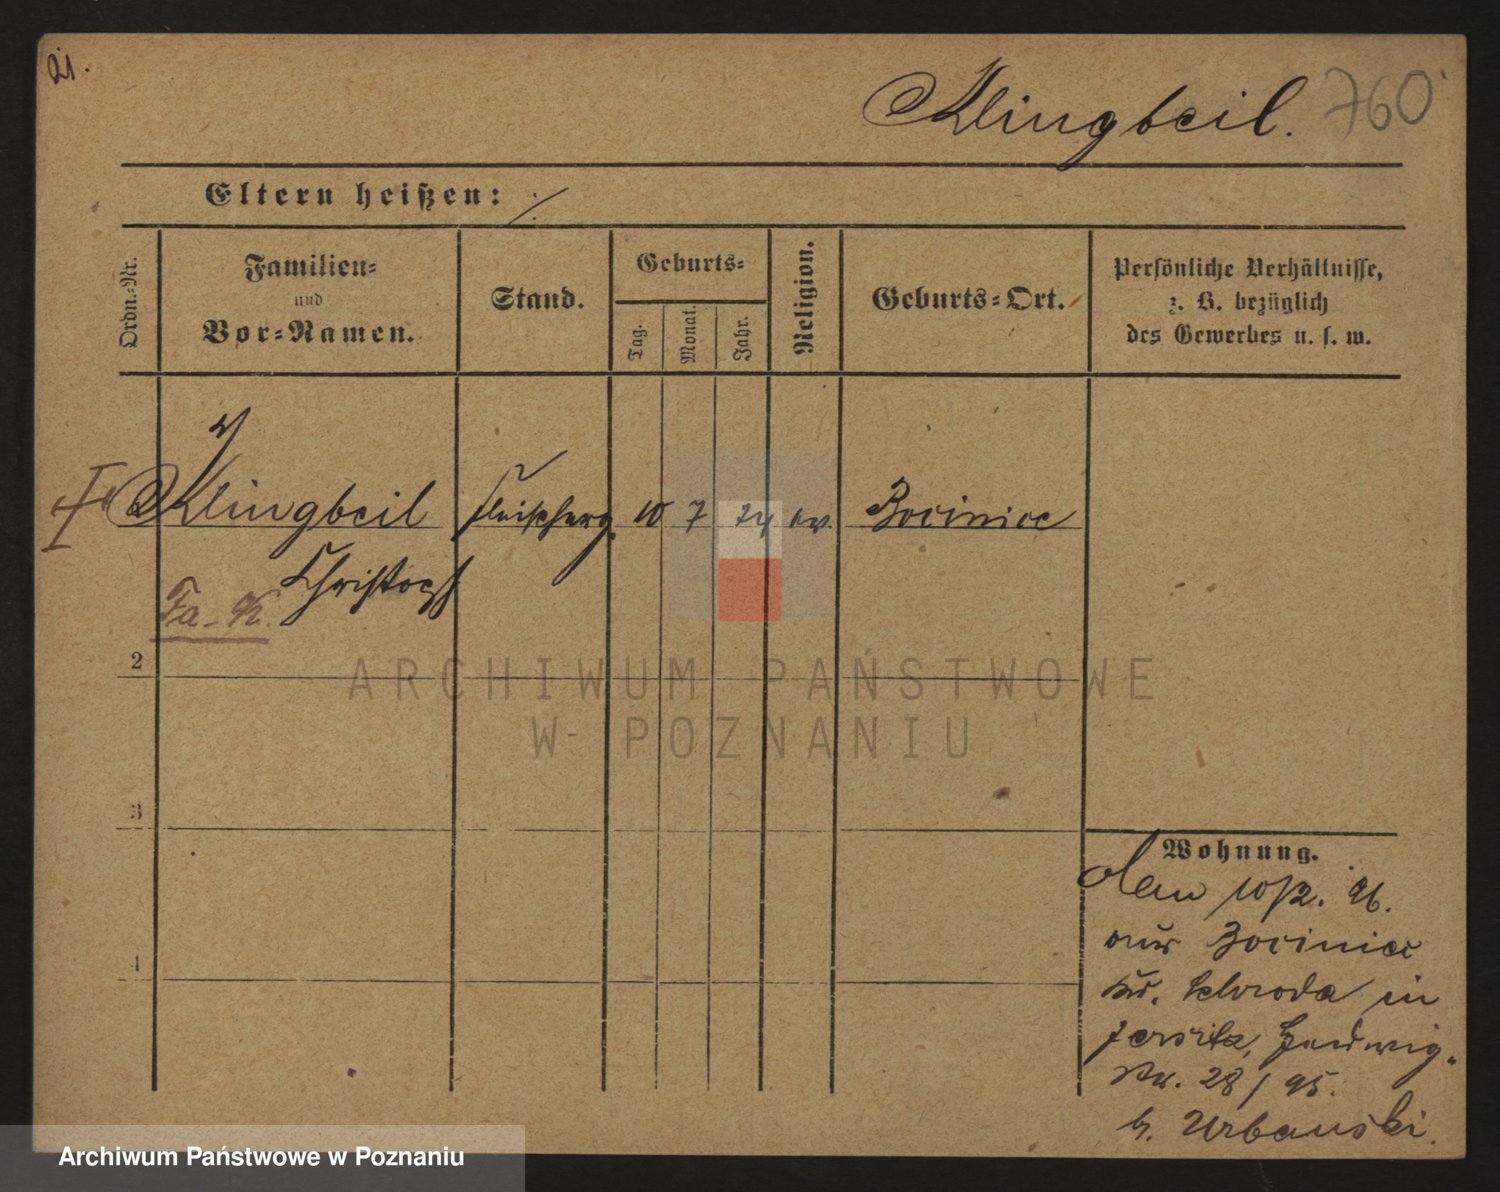 21.
Klingbeil. 760
Eltern heißen: ./.
Ordn.-Nr.
Familien-
und
Vor-Namen.
Stand.
Geburts-
Tag.
Monat.
Jahr.
Religion.
Geburts-Ort.
Persönliche Verhältnisse,
z. B. bezüglich
des Gewerbes u. s. w.
Klingbeil 10 7 74 ev. Bociniec
Christoph
Fa - K.
2
3
4
ARCHIWUM PAŃSTWOWE
W POZNANIU
Wohnung.
10/2. 96.
aus Bociniec
Kr. Schroda in
Jersitz, Hedwig-
str. 28/95.
b. Urbanski.
Archiwum Państwowe w Poznaniu